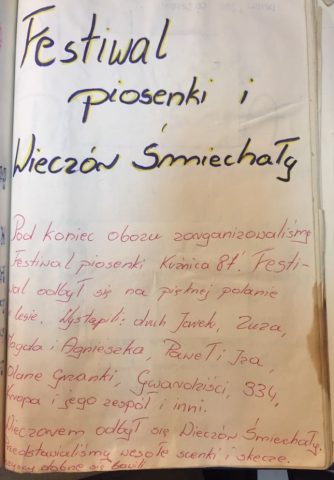 Festiwal
piosenki i
Wieczór Śmiechały
Pod koniec obozu zorganizowaliśmy
Festiwal piosenki Kuźnica 87. Festi-
wal odbył się na pięknej polanie
w lesie. Wystąpili: druh Jarek, Zuza,
Magda i Agnieszka, Paweł i Iza,
Gwardziści, 334,
i jego zespół i inni.
Wieczorem odbył się Wieczór Śmiechały.
Przedstawialiśmy wesołe scenki i skecze.
dobrze się bawili.